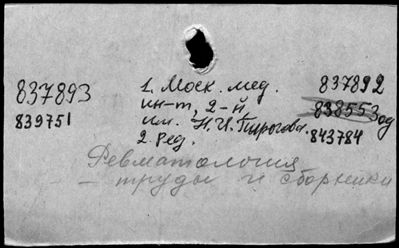 837893
839751
1. Моск. мед. 837892
ин-т, 2-й 838553 од
им. Н. И. Пирогова. 843784
2. Ред.
Ревматология
– труды и сборники